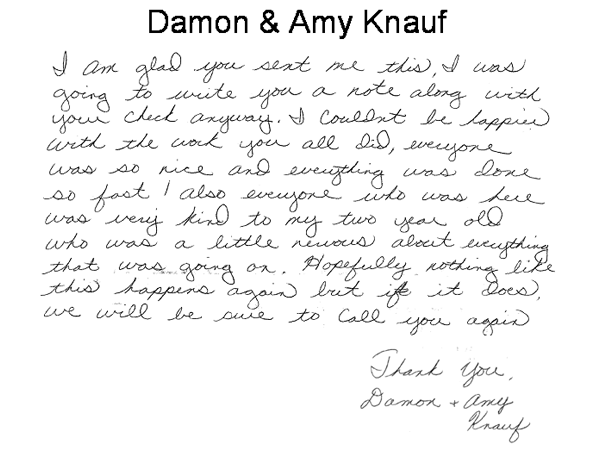 Damon & Amy Knauf
I am glad you sent me this, I was
going to write you a note along with
your check anyway. I couldnt be happier
with the work you all did, everyone
was so nice and everything was done
so fast! Also everyone who was here
was very kind to my two year old
who was a little nervous about everything
that was going on. Hopefully nothing like
this happens again but if it does,
we will be sure to call you again
Thank You,
Damon + Amy
Knauf